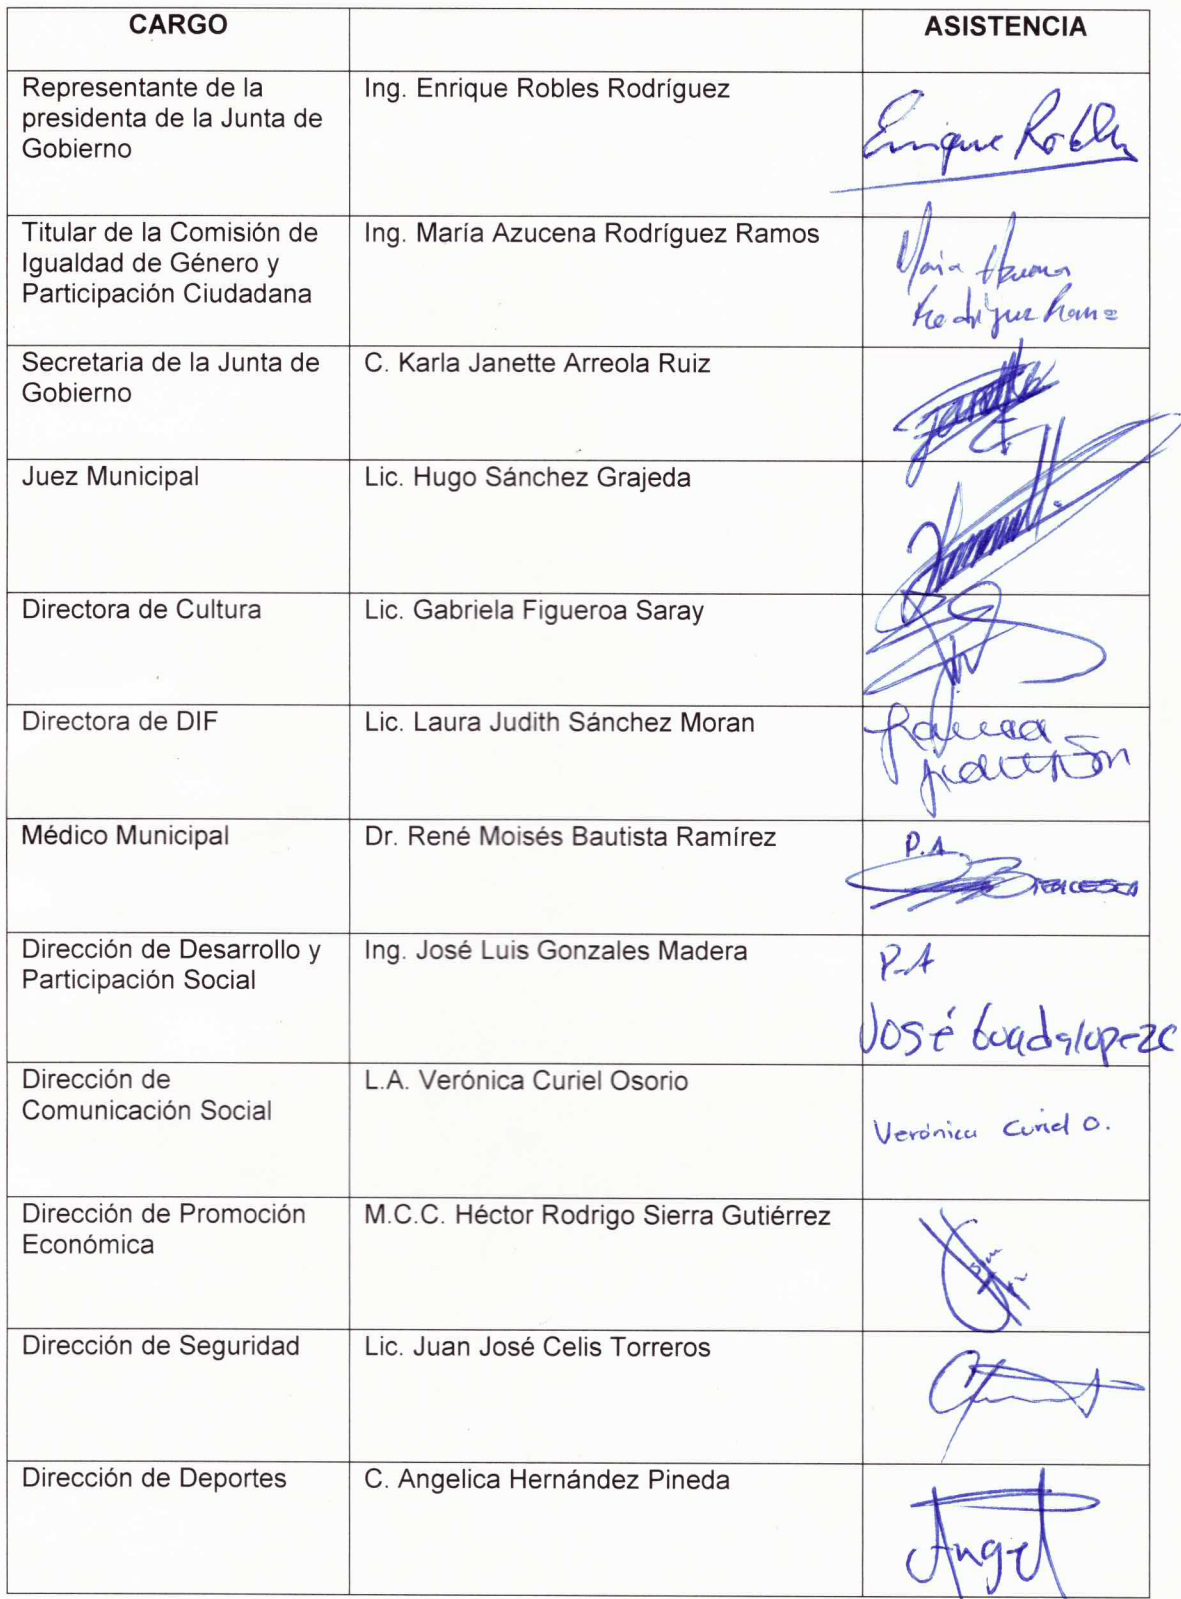 CARGO
ASISTENCIA
Representante de la
presidenta de la Junta de
Gobierno
Ing. Enrique Robles Rodríguez
Enrique Robles
Titular de la Comisión de
Igualdad de Género y
Participación Ciudadana
Ing. María Azucena Rodríguez Ramos
Maria Azucena
Rodriguez Ramos
Secretaria de la Junta de
Gobierno
C. Karla Janette Arreola Ruiz
Juez Municipal
Lic. Hugo Sánchez Grajeda
Directora de Cultura
Lic. Gabriela Figueroa Saray
Directora de DIF
Lic. Laura Judith Sánchez Moran
Laura
Médico Municipal
Dr. René Moisés Bautista Ramírez
P.A.
Dirección de Desarrollo y
Participación Social
Ing. José Luis Gonzales Madera
P.A
José
Dirección de
Comunicación Social
L.A. Verónica Curiel Osorio
Verónica Curiel O.
Dirección de Promoción
Económica
M.C.C. Héctor Rodrigo Sierra Gutiérrez
Dirección de Seguridad
Lic. Juan José Celis Torreros
Dirección de Deportes
C. Angelica Hernández Pineda
Angel